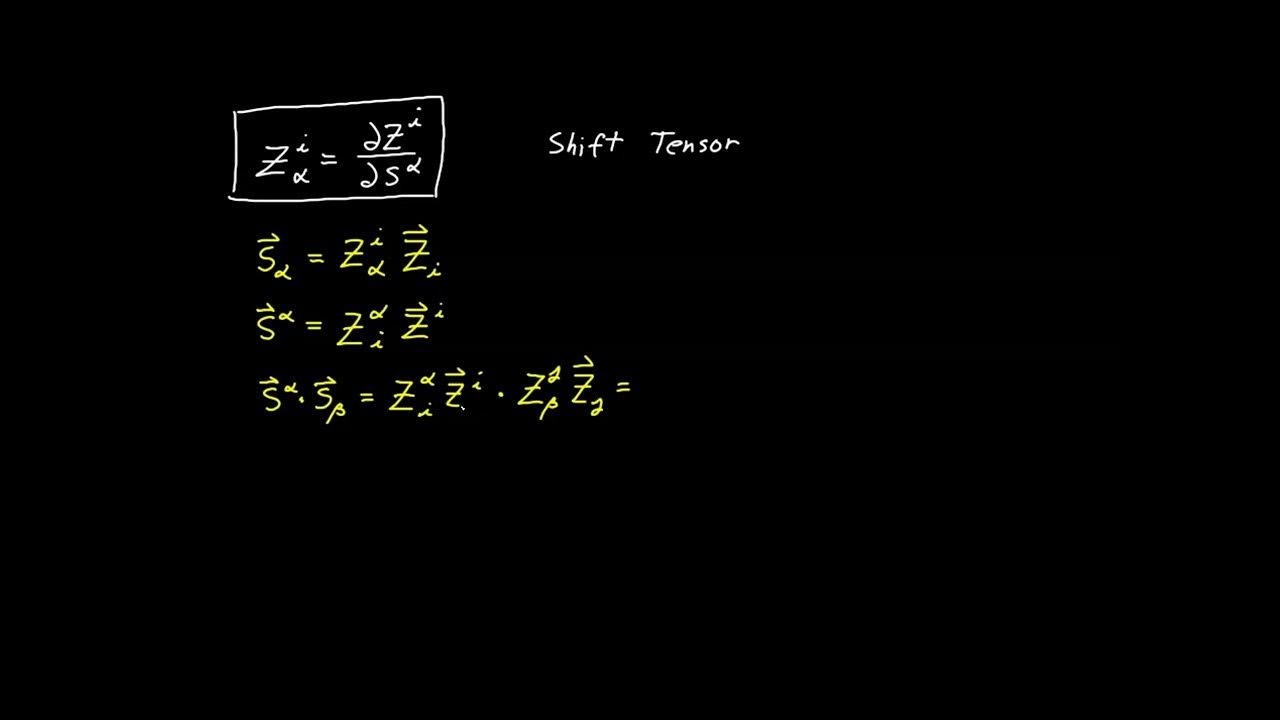 Z^i_α = ∂Z^i/∂S^α Shift Tensor
S⃗_α = Z^i_α Z⃗_i
S⃗^α = Z^α_i Z⃗^i
S⃗^α · S⃗_β = Z^α_i Z⃗^i · Z^j_β Z⃗_j =